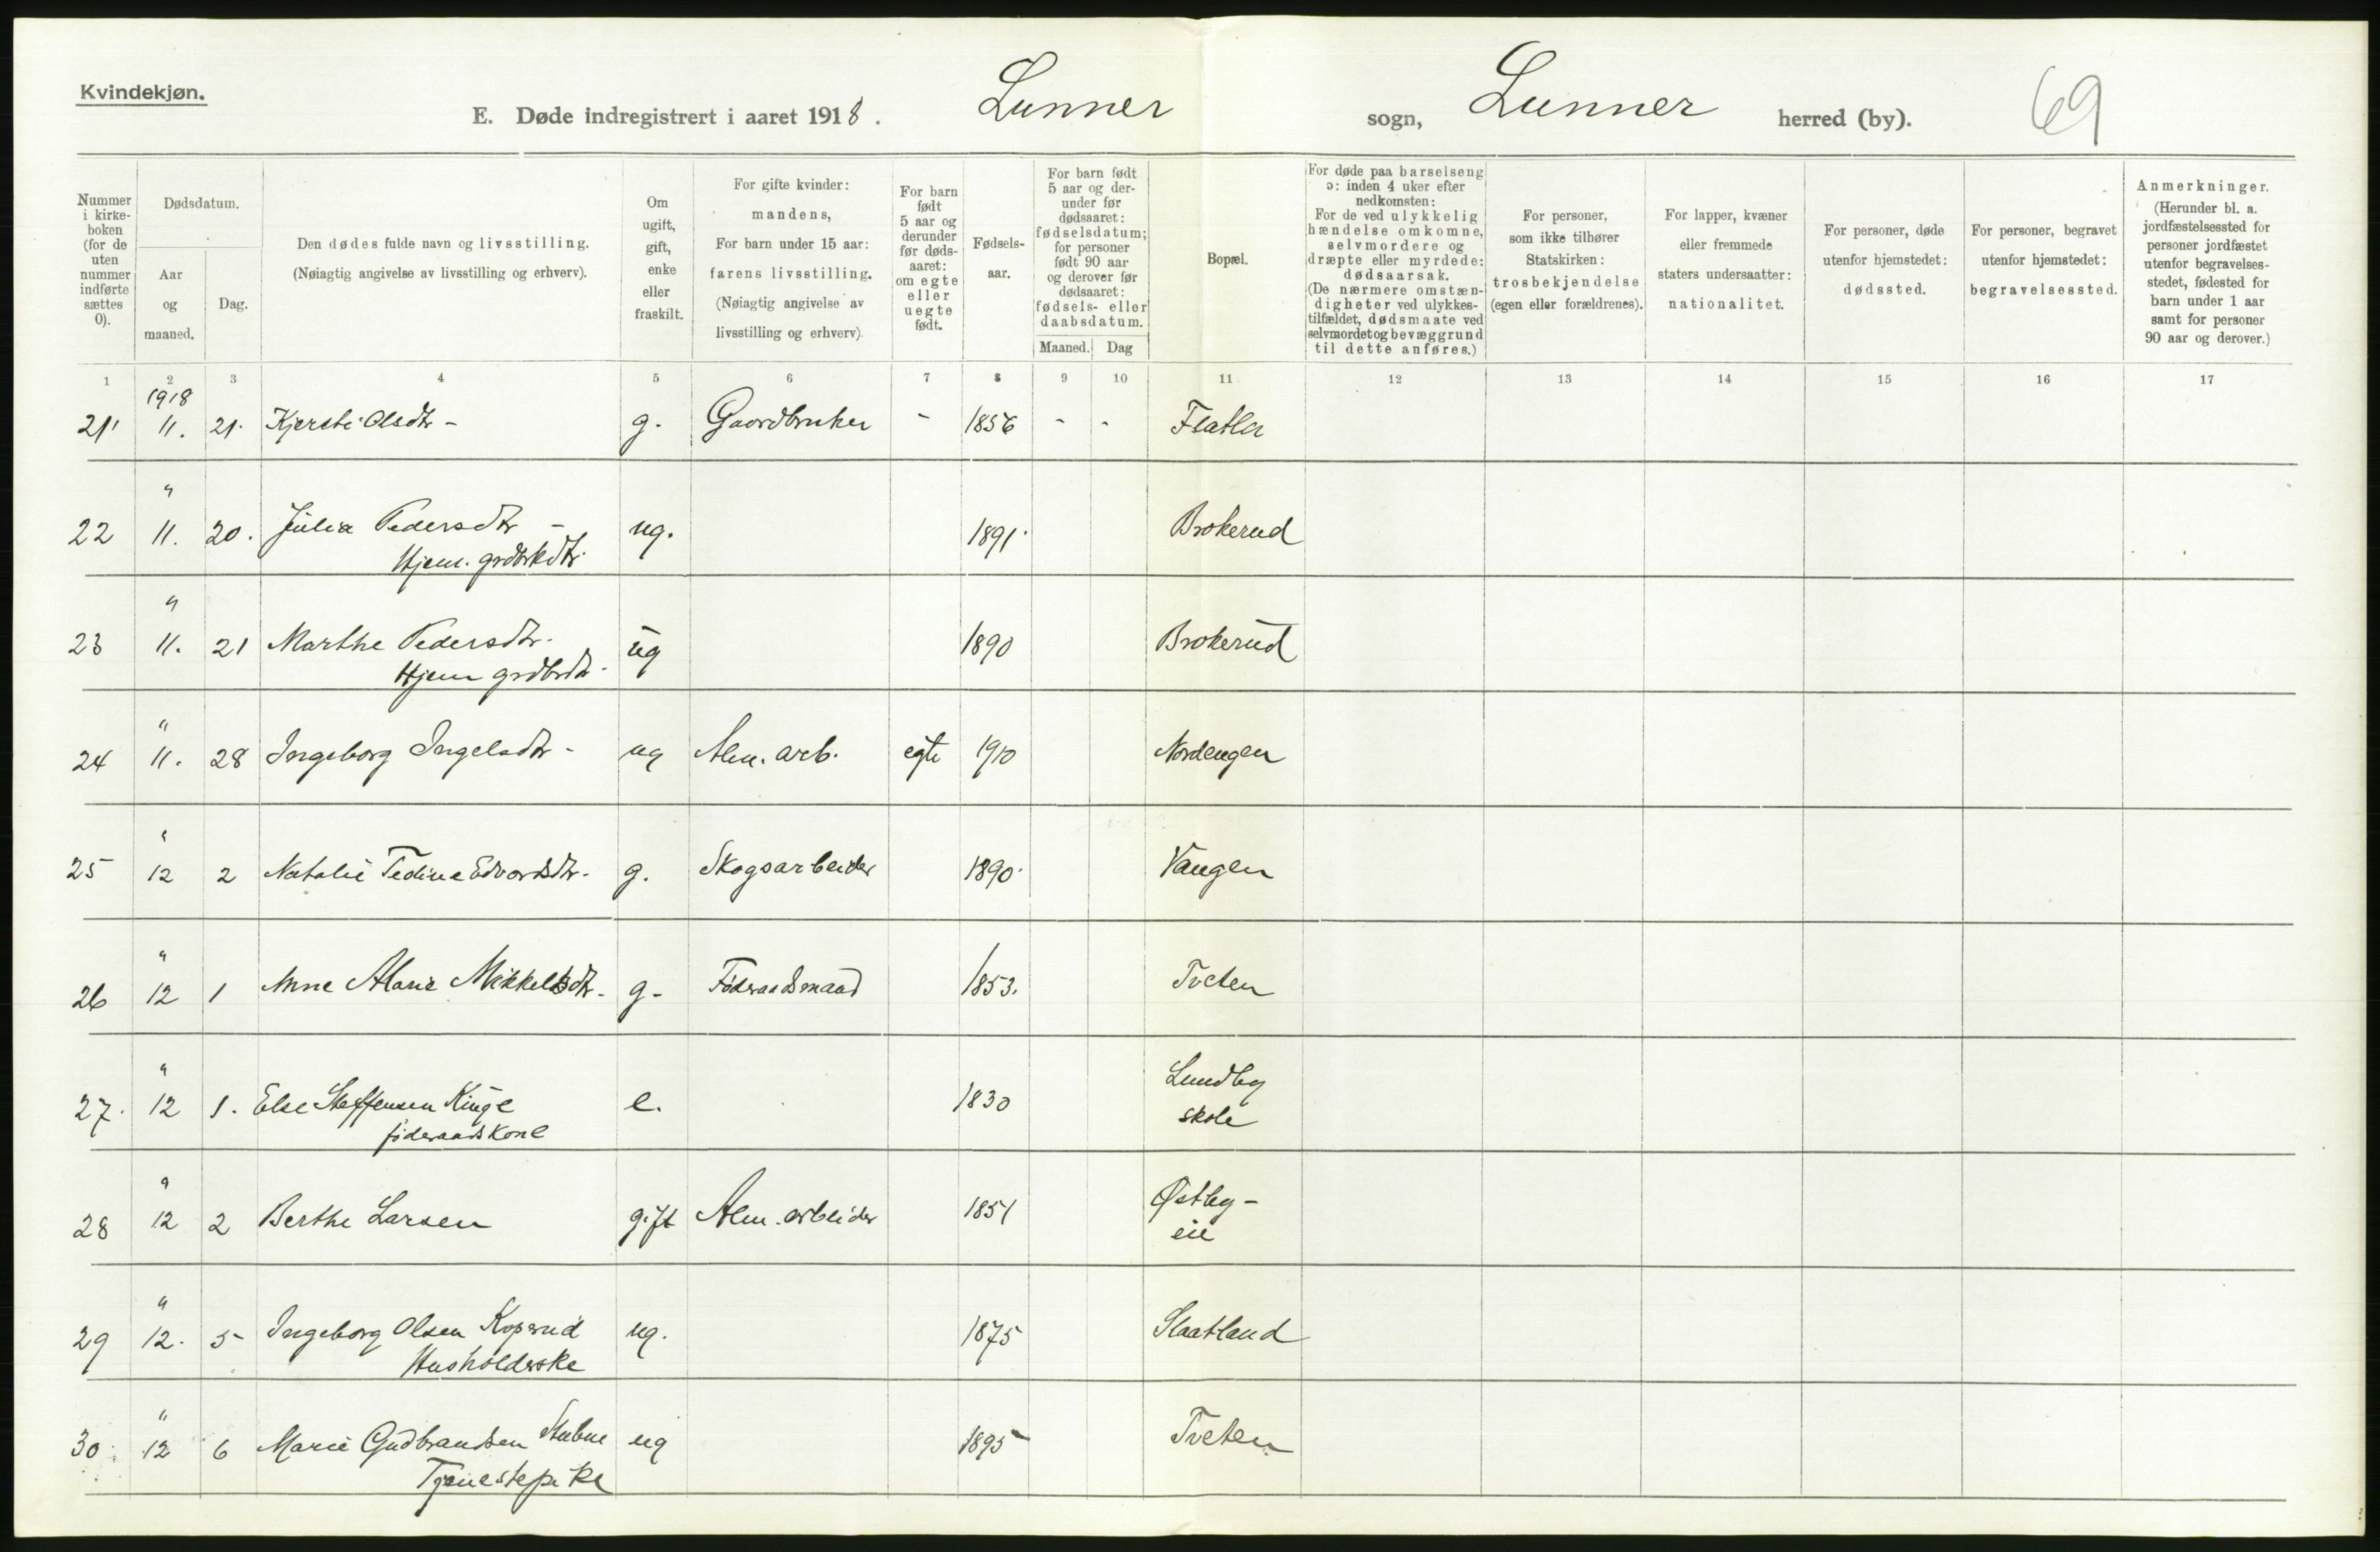 Kvindekjøn.
E. Døde indregistrert i aaret 1918. Lunner sogn, Lunner herred (by). 69
Nummer i kirkeboken (for de uten nummer indførte sættes 0).
Dødsdatum.
Aar og maaned.
Dag.
Den dødes fulde navn og livsstilling.
(Nøiagtig angivelse av livsstilling og erhverv).
Om ugift, gift, enke eller fraskilt.
For gifte kvinder: mandens,
For barn under 15 aar: farens livsstilling.
(Nøiagtig angivelse av livsstilling og erhverv).
For barn født 5 aar og derunder før dødsaaret: om egte eller uegte født.
Fødselsaar.
For barn født 5 aar og derunder før dødsaaret: fødselsdatum; for personer født 90 aar og derover før dødsaaret: fødsels- eller daabsdatum.
Maaned. Dag
Bopæl.
For døde paa barselseng ɔ: inden 4 uker efter nedkomsten:
For de ved ulykkelig hændelse omkomne, selvmordere og dræpte eller myrdede: dødsaarsak.
(De nærmere omstændigheter ved ulykkestilfældet, dødsmaate ved selvmordet og bevæggrund til dette anføres.)
For personer, som ikke tilhører Statskirken: trosbekjendelse (egen eller forældrenes).
For lapper, kvæner eller fremmede staters undersaatter: nationalitet.
For personer, døde utenfor hjemstedet: dødssted.
For personer, begravet utenfor hjemstedet: begravelsessted.
Anmerkninger.
(Herunder bl. a. jordfæstelsessted for personer jordfæstet utenfor begravelsesstedet, fødested for barn under 1 aar samt for personer 90 aar og derover.)
1 2 3 4 5 6 7 8 9 10 11 12 13 14 15 16 17
1918
21 11. 21. Kjersti Olsdtr - g. Gaardbruker - 1856 - - Flatla
"
22 11. 20. Julia Pedersdtr - ug. 1891. Brokerud
Hjem. grdbrkdtr.
"
23 11. 21 Marthe Pedersdtr. ug 1890 Brokerud
Hjem grdbrdtr.
"
24 11. 28 Ingeborg Ingelsdtr - ug Alm. arb. egte 1910 Nordengen
"
25 12 2 Natalie Tedine Edvardsdtr. g. Skogsarbeider 1890. Vangen
"
26 12 1 Anne Marie Mikkelsdtr. g- Føderaadsmand 1853. Tveten
"
27. 12 1. Else Steffensen Kinge e. 1830 Lundby
føderaadskone skole
"
28 12 2 Berthe Larsen gift Alm. arbeider 1851 Østby-
eie
"
29 12. 5 Ingeborg Olsen Koperud ug. 1875 Slaatland
Husholderske
"
30. 12 6 Marie Gudbrandsen Stubne ug 1895 Tveten
Tjenestepike